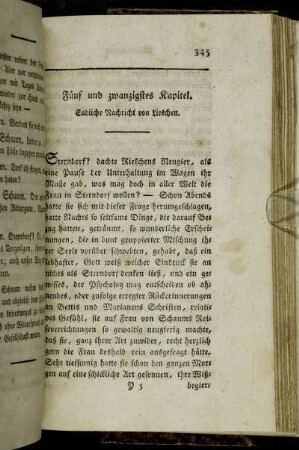 345
Fünf und zwanzigstes Kapitel.
Endliche Nachricht von Lieschen.
Sterndorf? dachte Riekchens Neugier, als
eine Pause der Unterhaltung im Wagen ihr
Muße gab, was mag doch in aller Welt die
Frau in Sterndorf wollen? — Schon Abends
hatte sie sich mit dieser Frage herumgeschlagen,
hatte Nachts so seltsame Dinge, die darauf Bez
zug hatten, geträumt, so wunderliche Erschei
nungen, die in bunt gruppierter Mischung ihr
der Seele vorüber schwebten, gehabt, daß ein
lebhafter, Gott weiß welcher Eindruck sie an
nichts als Sterndorf denken ließ, und ein ge
wisses, der Psycholog mag entscheiden ob ah
nendes, oder zufolge erregter Rückerinnerungen
an Bettis und Marianens Schriften, relati
ves Gefühl, sie auf Frau von Schaums Rei
severrichtungen so gewaltig neugierig machte,
daß sie, ganz ihrer Art zuwider, recht herzlich
gern die Frau deshalb rein ausgefragt hätte.
Sehr tiefsinnig hatte sie schon den ganzen Mor
gen auf eine schickliche Art gesonnen, ihre Wiß-
Y 5
begier